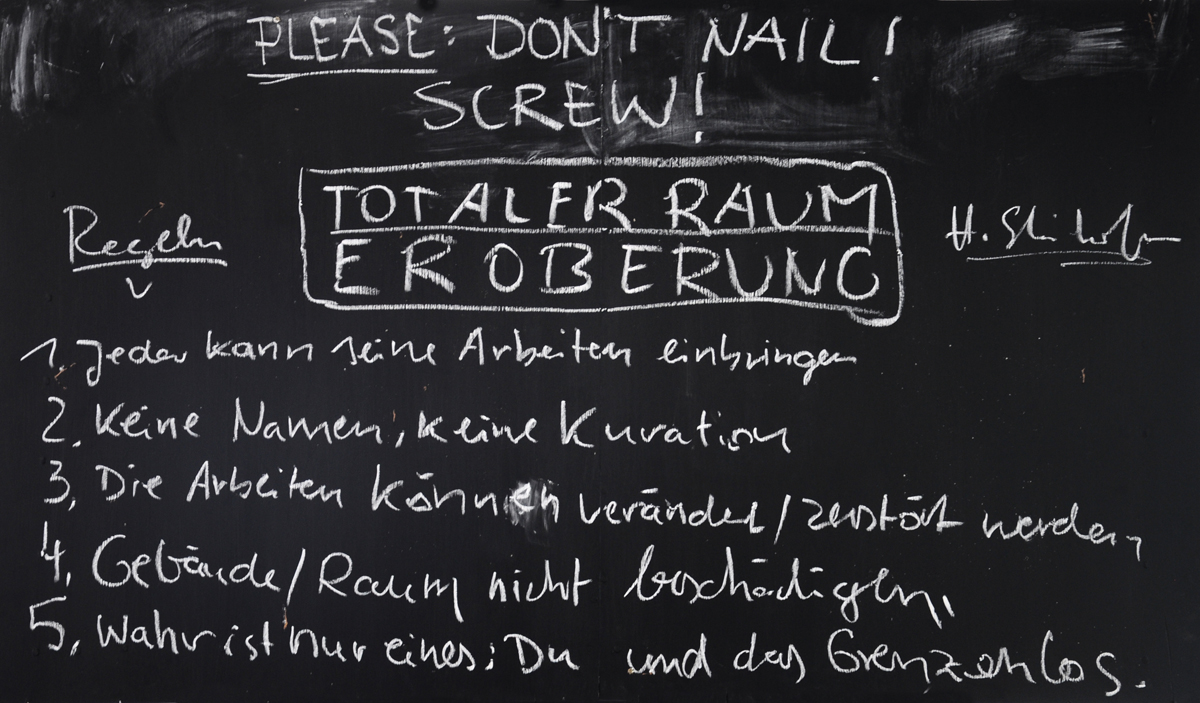 PLEASE: DON'T NAIL!
SCREW!
TOTALER RAUM
EROBERUNG
Regeln
1. Jeder kann seine Arbeiten einbringen
2. Keine Namen, keine Kuration
3. Die Arbeiten können verändert/zerstört werden,
4. Gebäude/Raum nicht beschädigen,
5. Wahr ist nur eines: Du und das Grenzenlos.